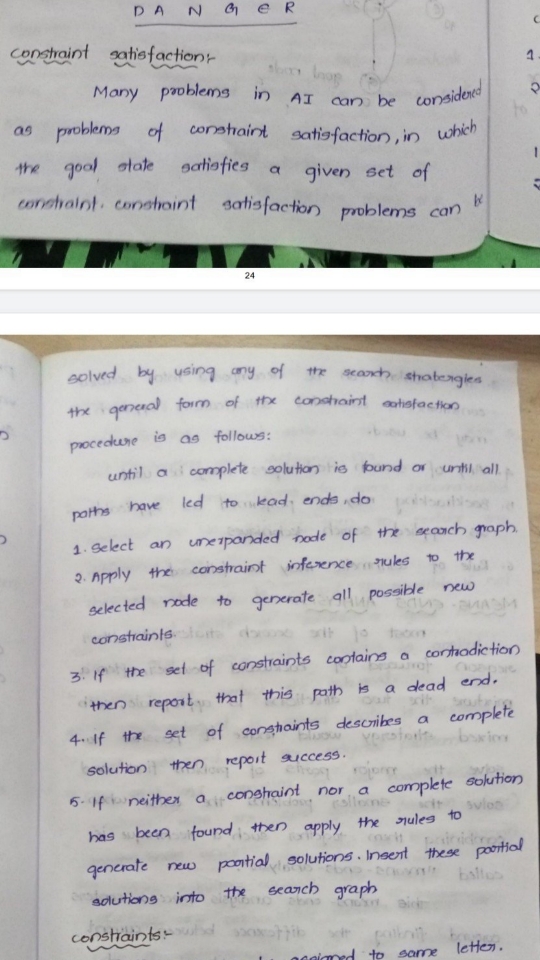 D A N G E R
constraint satisfaction:-
Many problems in AI can be considered
as problems of constraint satisfaction, in which
the goal state satisfies a given set of
constraint. constraint satisfaction problems can be
24
solved by using any of the search stratergies
the general form of the constraint satisfaction
procedure is as follows:
until a complete solution is found or until all
paths have led to lead ends, do
1. select an unexpanded node of the search graph.
2. Apply the constraint inference rules to the
selected node to generate all possible new
constraints.
3. If the set of constraints contains a contradiction
then report that this path is a dead end.
4. If the set of constraints describes a complete
solution then report success.
5. If neither a constraint nor a complete solution
has been found, then apply the rules to
generate new partial solutions. Insert these partial
solutions into the search graph
constraints:-
assigned to same letter.
1.
2
1
2